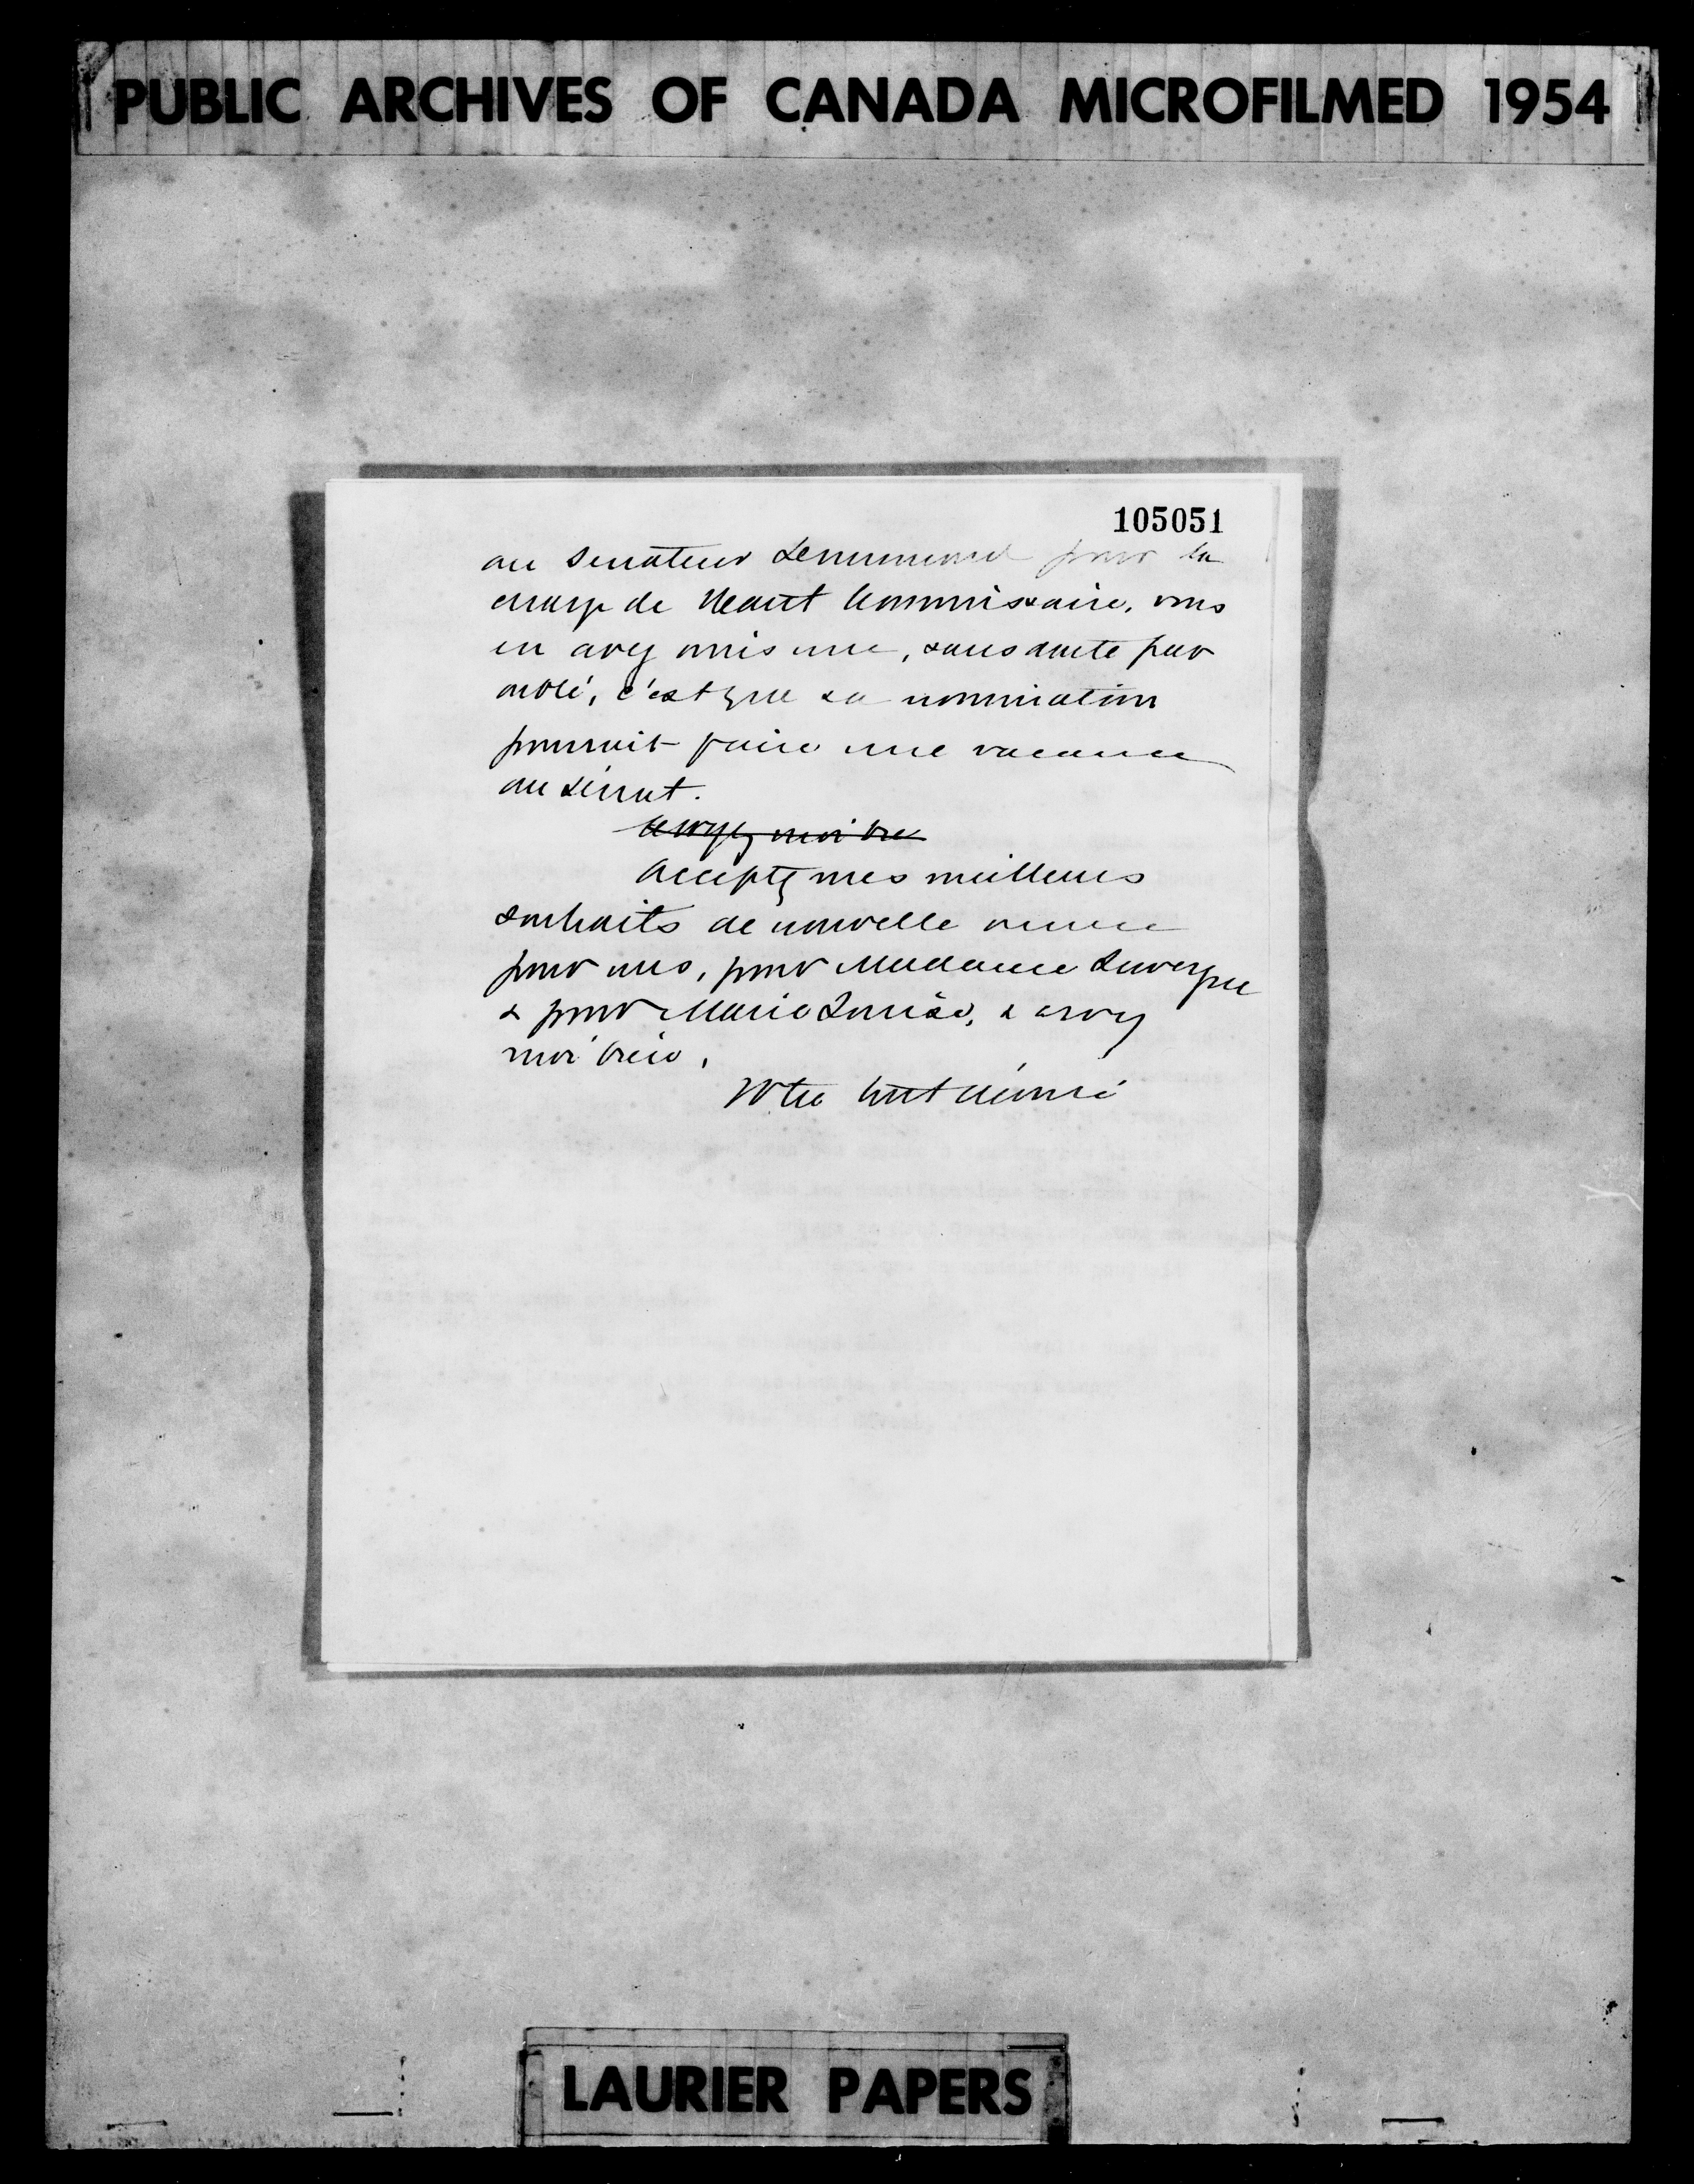 PUBLIC ARCHIVES OF CANADA MICROFILMED 1954
105051
au Sénateur pour la
charge de Haut Commissaire, vous
en avez omis une, sans doute par
oubli, c'est que sa nomination
pourrait faire une vacance
au Sénat.
Croyez moi bien
Acceptez mes meilleurs
souhaits de nouvelle année
pour vous, pour Madame Lavergne
& pour Marie Louise, & croyez
moi bien,
Votre tout dévoué
LAURIER PAPERS